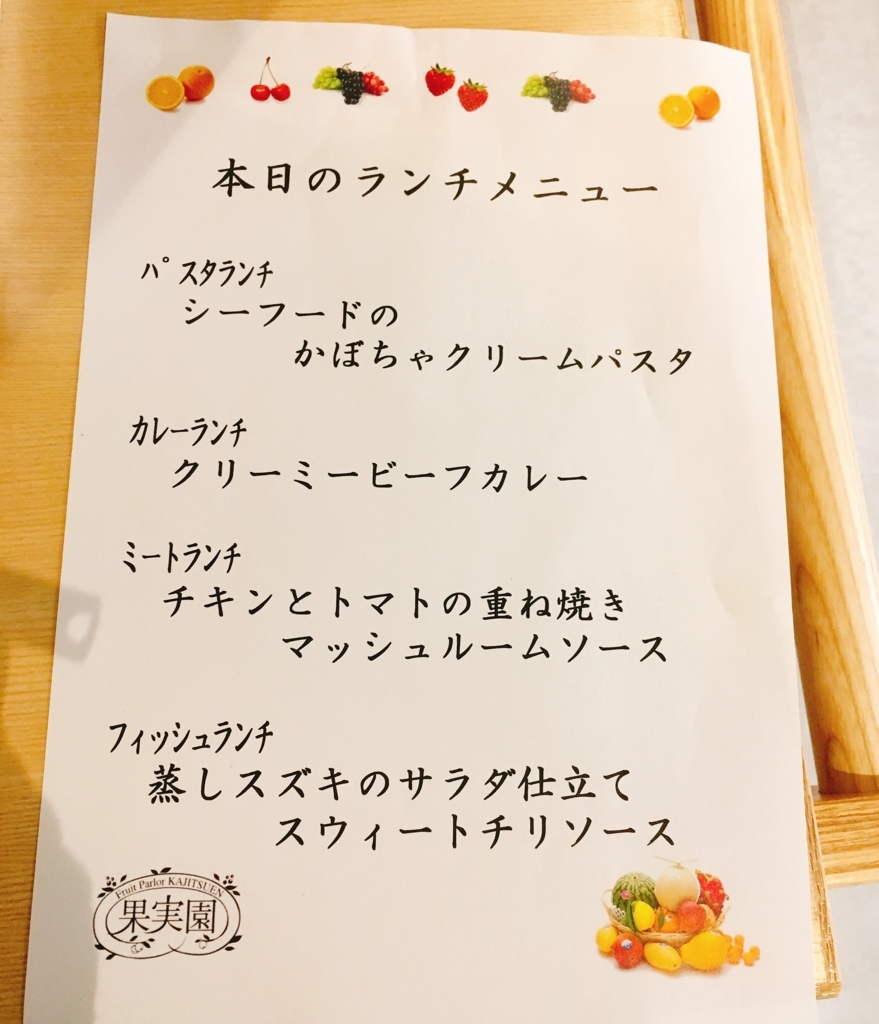 本日のランチメニュー
パスタランチ
シーフードの
かぼちゃクリームパスタ
カレーランチ
クリーミービーフカレー
ミートランチ
チキンとトマトの重ね焼き
マッシュルームソース
フィッシュランチ
蒸しスズキのサラダ仕立て
スウィートチリソース
Fruit Parlor KAJITSUEN
果実園